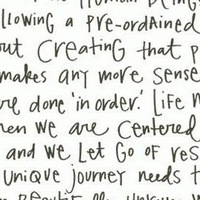 Human Being
llowing a pre-ordained
out Creating that p
makes any more sense
are done 'in order.' Life m
hen we are Centered
and we Let Go of res
unique journey needs t